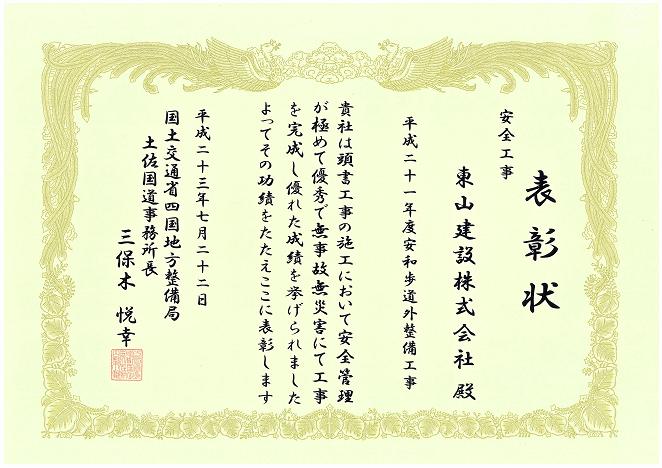 表彰状
安全工事
東山建設株式会社 殿
平成二十一年度安和歩道外整備工事
貴社は頭書工事の施工において安全管理
が極めて優秀で無事故無災害にて工事
を完成し優れた成績を挙げられました
よってその功績をたたえここに表彰します
平成二十三年七月二十二日
国土交通省四国地方整備局
土佐国道事務所長
三保木 悦幸